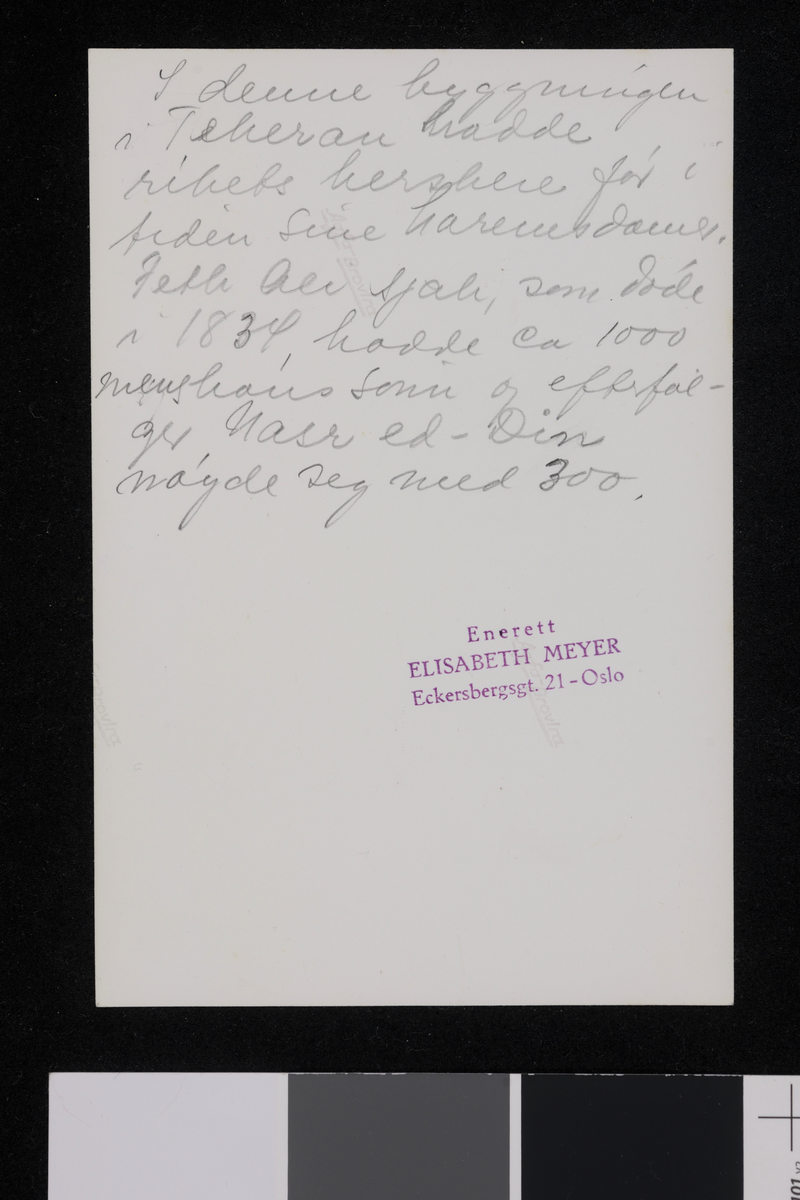 I denne byggningen
i Teheran hadde
rikets herskere før i
tiden sine haremsdamer.
Feth Ali Sjah, som døde
i 1834, hadde ca 1000
mens hans sønn og efterføl-
ger Nasr ed-Din
nøyde seg med 300.
Enerett
ELISABETH MEYER
Eckersbergsgt. 21 - Oslo